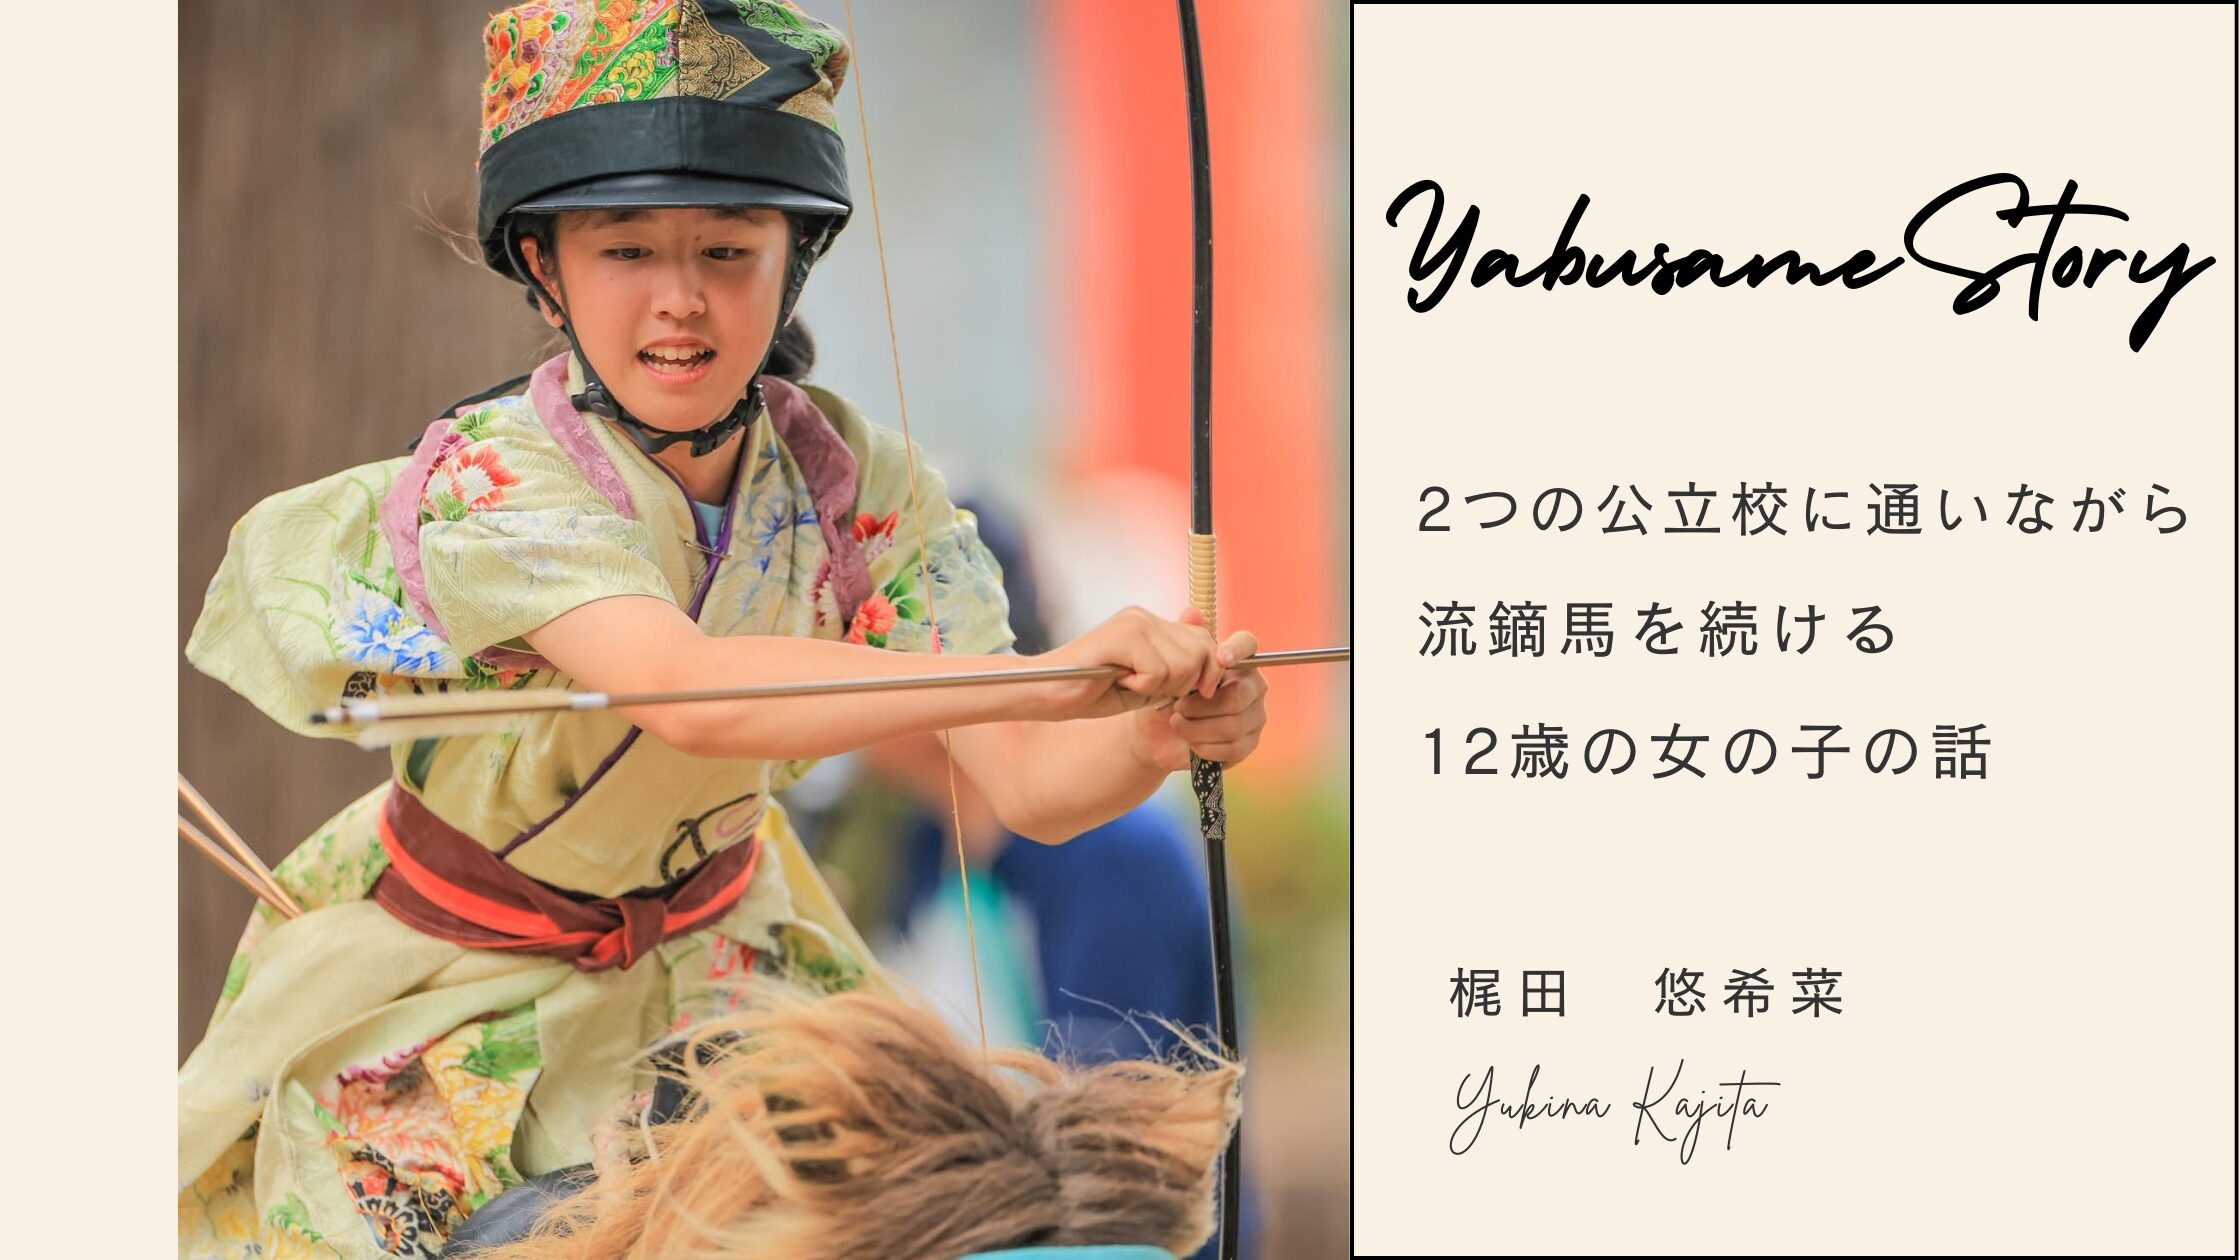 Yabusame Story
2つの公立校に通いながら
流鏑馬を続ける
12歳の女の子の話
梶田　悠希菜
Yukina Kajita